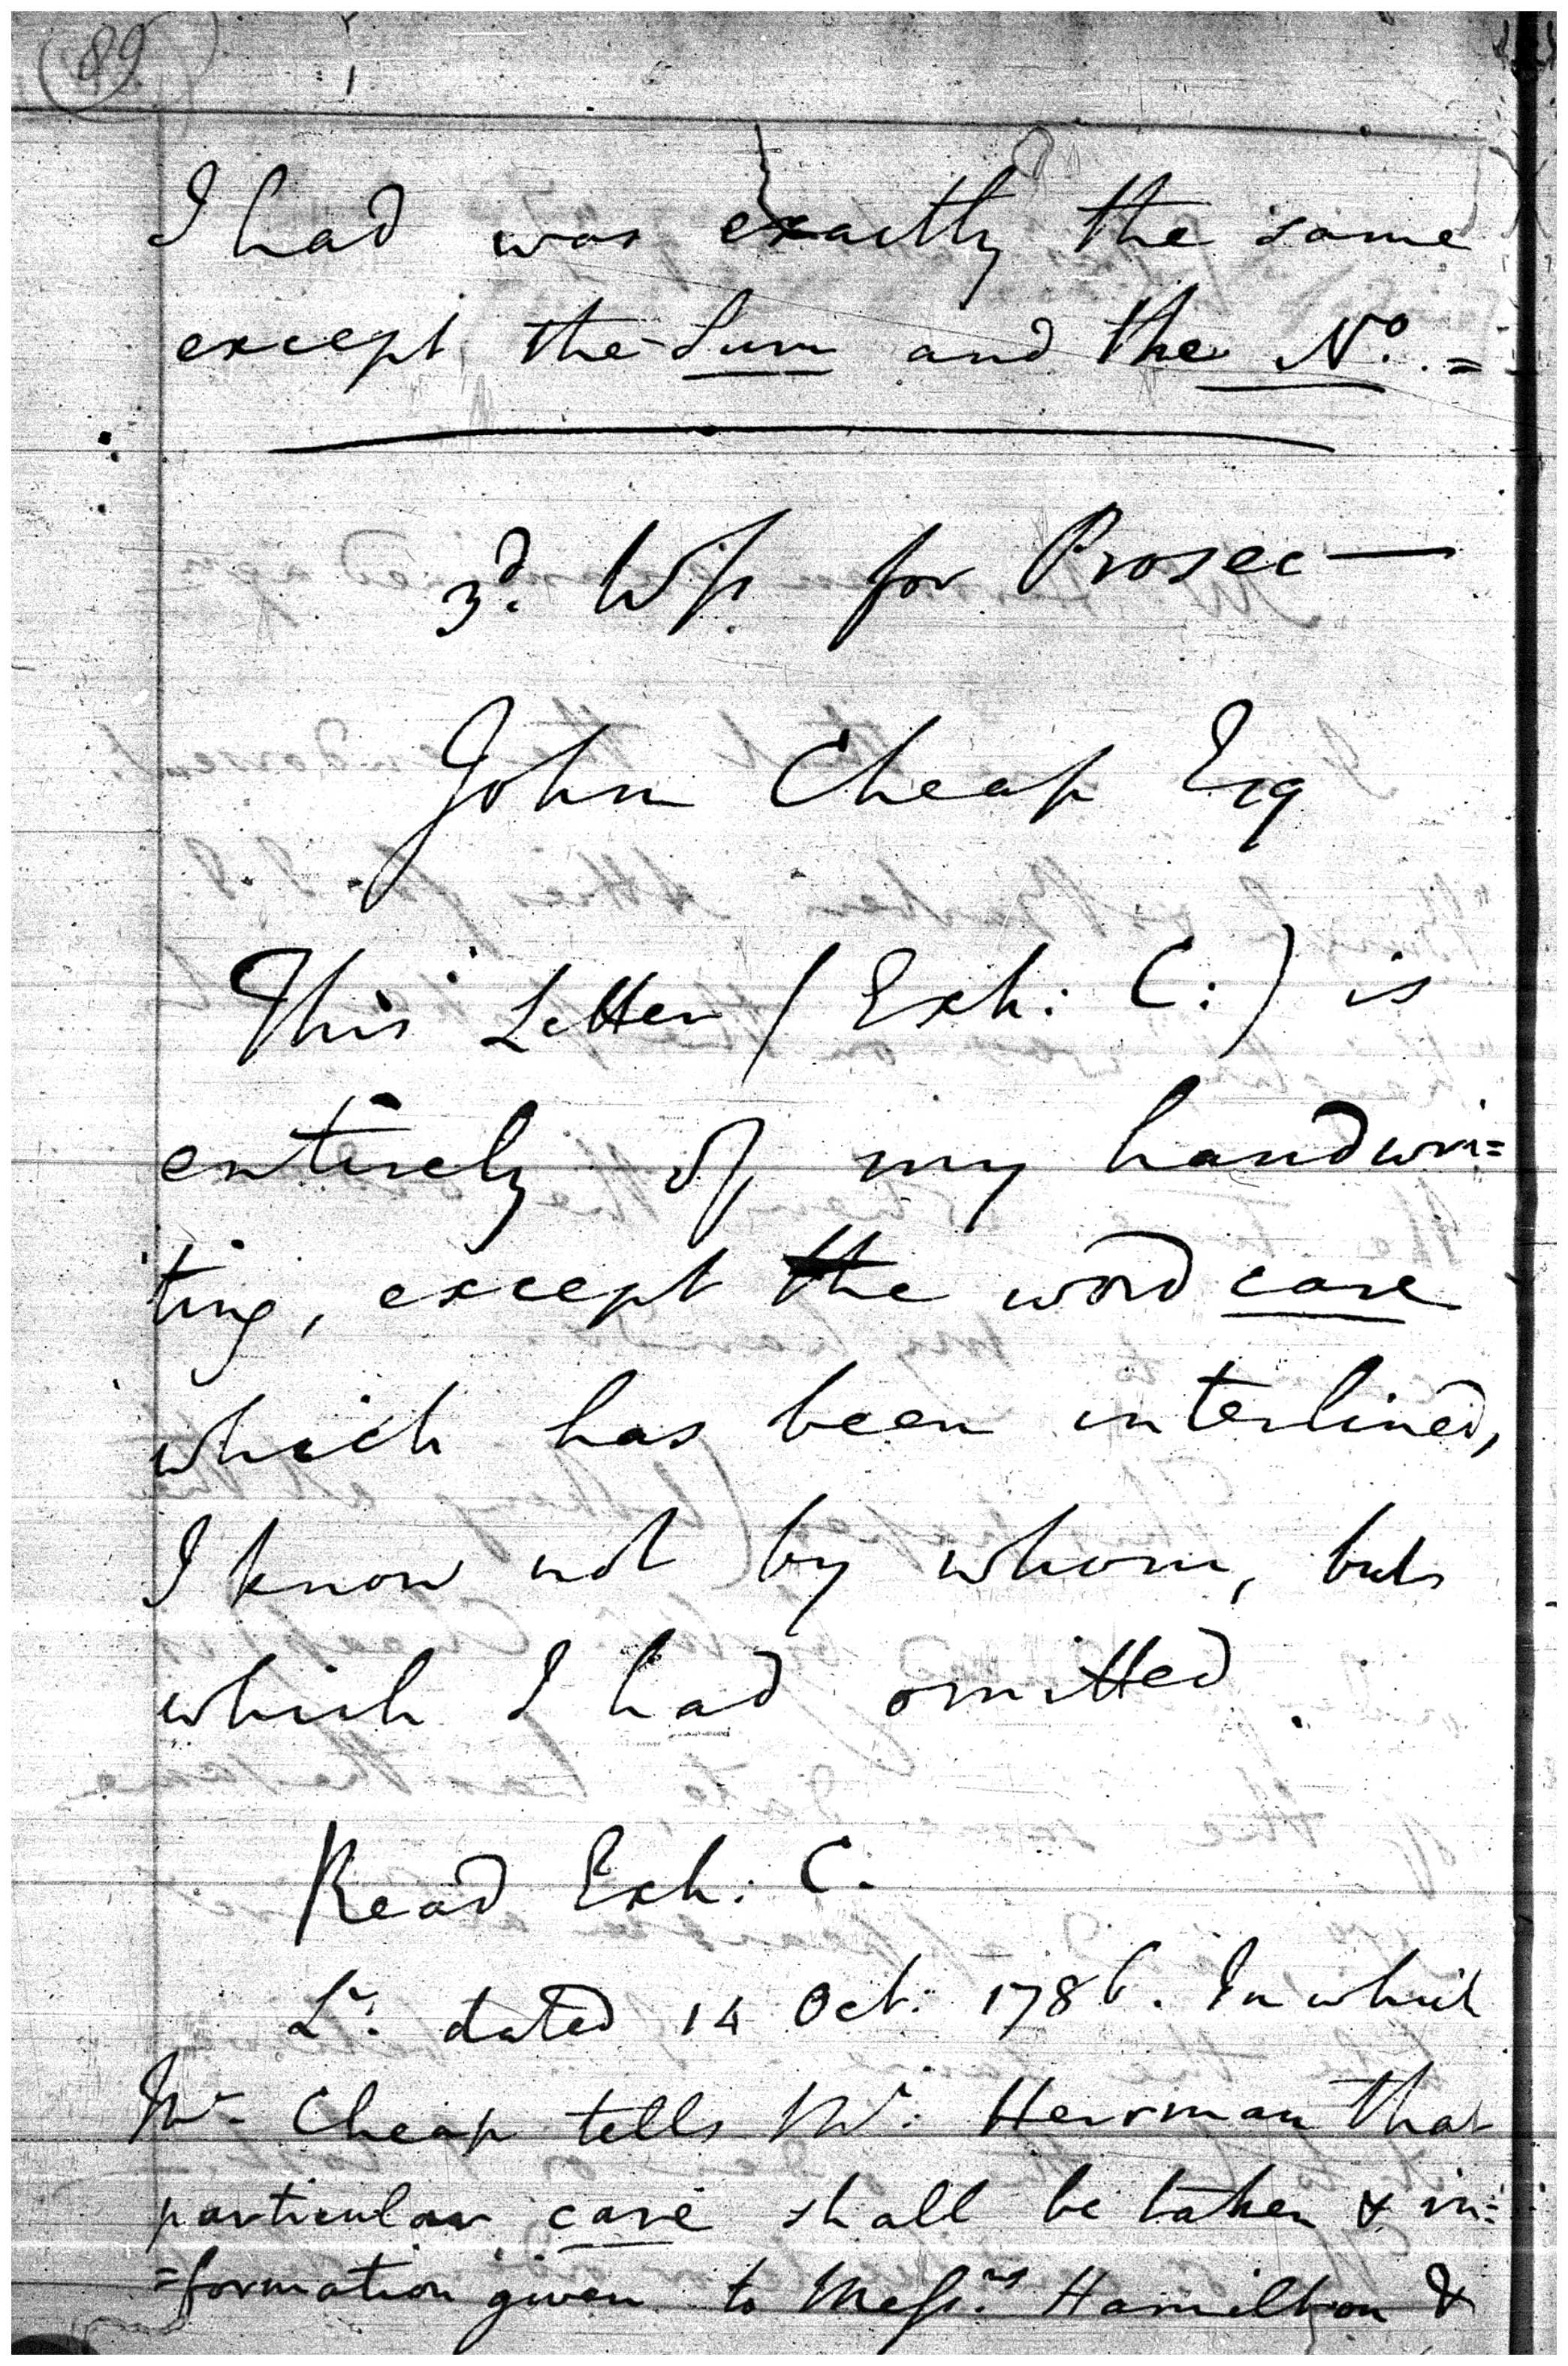 89
I had was exactly the same
except the Sum and the No. =
3d. Wss for Prosec—
John Cheap Esq
This Letter (Exh: C:) is
entirely of my handwri=
ting, except the word care
which has been interlined,
I know not by whom, but
which I had omitted.
Read Exh: C.
Lr. dated 14 Oct: 1786. In which
Mr. Cheap tells Mr. Herrman that
particular care shall be taken & in=
=formation given to Messrs. Hamilton &